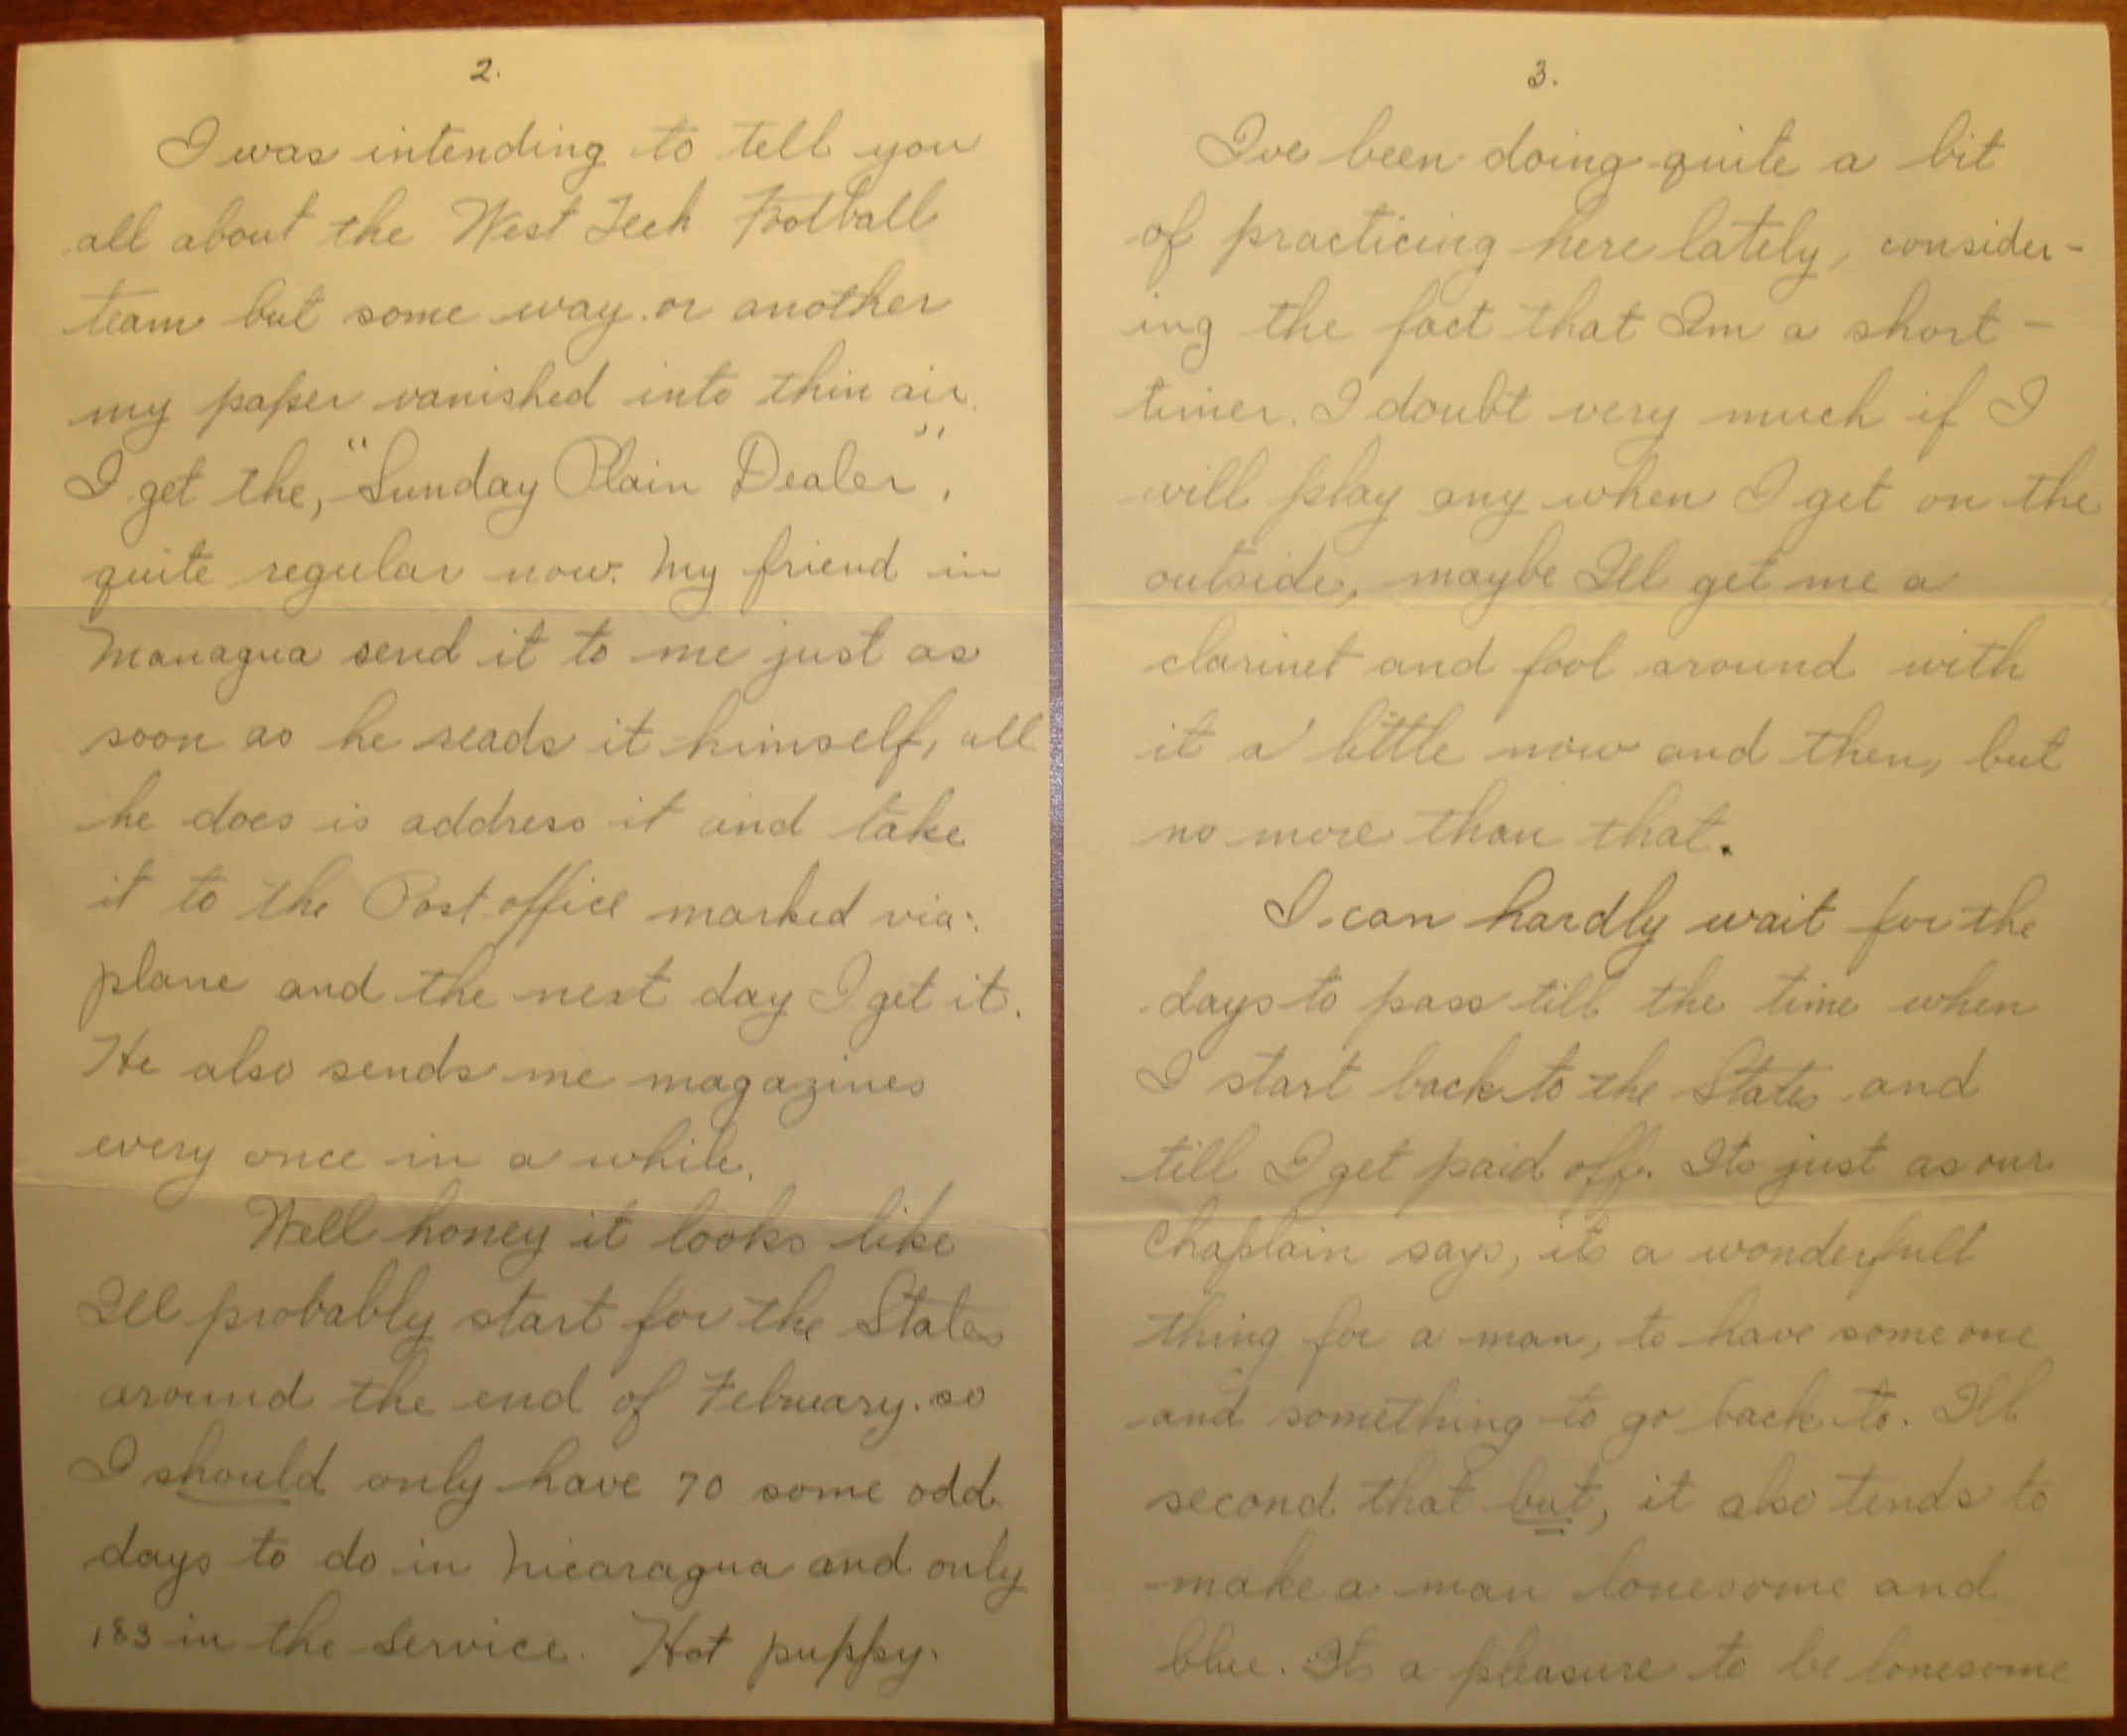 2.
I was intending to tell you
all about the West Tech Football
team but some way or another
my paper vanished into thin air.
I get the, "Sunday Plain Dealer",
quite regular now. My friend in
Managua send it to me just as
soon as he reads it himself, all
he does is address it and take
it to the Post office marked via:
plane and the next day I get it.
He also sends me magazines
every once in a while.
Well honey it looks like
Ill probably start for the States
around the end of February. so
I should only have 70 some odd
days to do in Nicaragua and only
183 in the service. Hot puppy.
3.
Ive been doing quite a bit
of practicing here lately, consider-
ing the fact that Im a short-
timer. I doubt very much if I
will play any when I get on the
outside, maybe Ill get me a
clarinet and fool around with
it a little now and then, but
no more than that.
I can hardly wait for the
days to pass till the time when
I start back to the States and
till I get paid off. Its just as our
Chaplain says, its a wonderfull
thing for a man, to have some one
and something to go back to. Ill
second that but, it also tends to
make a man lonesome and
blue. Its a pleasure to be lonesome